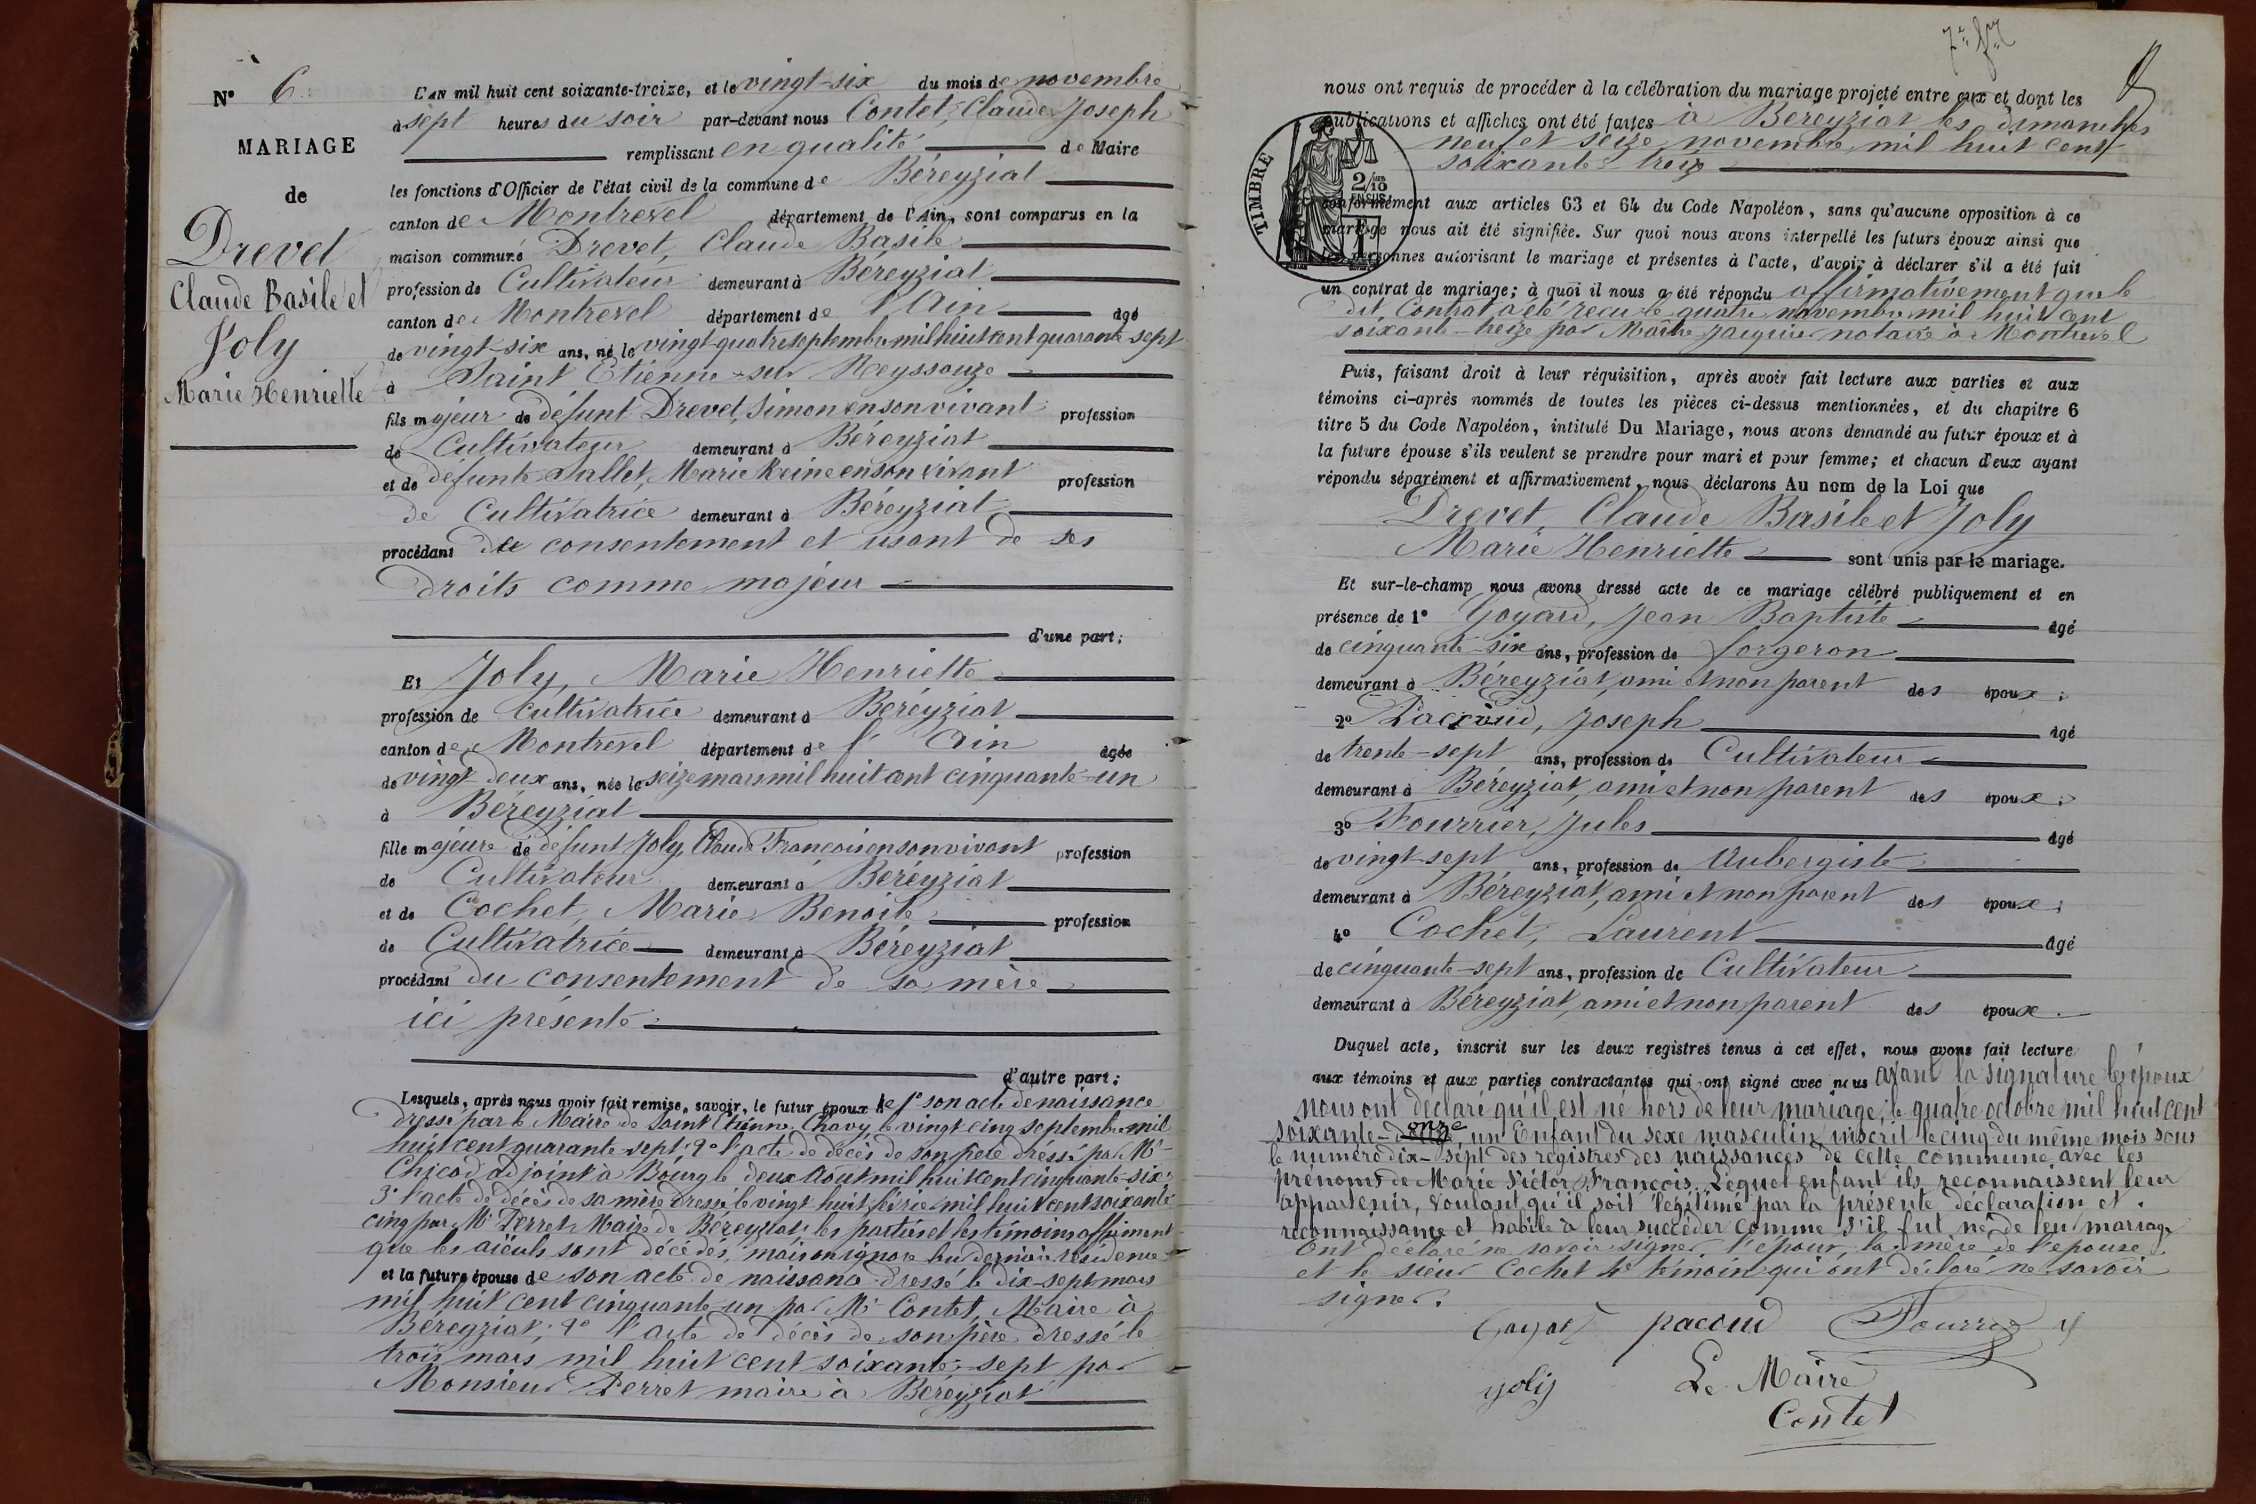 N° 6.
MARIAGE
de
Drevet
Claude Basile et
Joly
Marie Henriette
L'AN mil huit cent soixante-treize, et le vingt-six du mois de novembre
à sept heures du soir par-devant nous Contet, Claude Joseph
remplissant en qualité de Maire
les fonctions d'Officier de l'état civil de la commune de Béreyziat
canton de Montrevel département de l'Ain, sont comparus en la
maison commune Drevet, Claude Basile
profession de Cultivateur demeurant à Béreyziat
canton de Montrevel département de l'Ain âgé
de vingt-six ans, né le vingt-quatre septembre mil huit cent quarante-sept
à Saint Etienne-sur Reyssouze
fils majeur de défunt Drevet, Simon en son vivant profession
de Cultivateur demeurant à Béreyziat
et de défunte Sallet, Marie Reine en son vivant profession
de Cultivatrice demeurant à Béreyziat
procédant de consentement et usant de ses
droits comme majeur
d'une part;
Et Joly, Marie Henriette
profession de Cultivatrice demeurant à Béreyziat
canton de Montrevel département de l'Ain âgée
de vingt deux ans, née le seize mars mil huit cent cinquante-un
à Béreyziat
fille majeure de défunt Joly, Claude François en son vivant profession
de Cultivateur demeurant à Béreyziat
et de Cochet, Marie Benoite profession
de Cultivatrice demeurant à Béreyziat
procédant du consentement de sa mère
ici présente
d'autre part;
Lesquels, après nous avoir fait remise, savoir, le futur époux de 1° son acte de naissance
dressé par le Maire de Saint Etienne, Chavy, le vingt cinq septembre mil
huit cent quarante-sept; 2° l'acte de décès de son père dressé par Mr
Chicod adjoint à Bourg le deux Août mil huit cent cinquante-six;
3° l'acte de décès de sa mère dressé le vingt huit février mil huit cent soixante
cinq par Mr Perret Maire de Béreyziat; les parties et les témoins affirment
que les aïeuls sont décédés, mais on ignore leur dernière résidence
et la future épouse de son acte de naissance dressé le dix-sept mars
mil huit cent cinquante-un par Mr Contet, Maire à
Béreyziat; 2° l'acte de décès de son père dressé le
trois mars mil huit cent soixante-sept par
Monsieur Perret maire à Béreyziat
nous ont requis de procéder à la célébration du mariage projeté entre eux et dont les
publications et affiches ont été faites à Béreyziat les dimanches
neuf et seize novembre mil huit cent
soixante treize
TIMBRE
2/10
EN SUS
conformément aux articles 63 et 64 du Code Napoléon, sans qu'aucune opposition à ce
mariage nous ait été signifiée. Sur quoi nous avons interpellé les futurs époux ainsi que
les personnes autorisant le mariage et présentes à l'acte, d'avoir à déclarer s'il a été fait
un contrat de mariage; à quoi il nous a été répondu affirmativement que le
dit Contrat a été reçu le quatre novembre mil huit cent
soixante-treize par Maître Jacquier notaire à Montrevel
Puis, faisant droit à leur réquisition, après avoir fait lecture aux parties et aux
témoins ci-après nommés de toutes les pièces ci-dessus mentionnées, et du chapitre 6
titre 5 du Code Napoléon, intitulé Du Mariage, nous avons demandé au futur époux et à
la future épouse s'ils veulent se prendre pour mari et pour femme; et chacun d'eux ayant
répondu séparément et affirmativement, nous déclarons Au nom de la Loi que
Drevet, Claude Basile et Joly
Marie Henriette sont unis par le mariage.
Et sur-le-champ nous avons dressé acte de ce mariage célébré publiquement et en
présence de 1° Goyard, Jean Baptiste âgé
de cinquante-six ans, profession de forgeron
demeurant à Béreyziat, ami et non parent des époux;
2° Pacoud, Joseph âgé
de trente-sept ans, profession de Cultivateur
demeurant à Béreyziat, ami et non parent des époux;
3° Fourrier, Jules âgé
de vingt-sept ans, profession de Aubergiste
demeurant à Béreyziat, ami et non parent des époux;
4° Cochet, Laurent âgé
de cinquante-sept ans, profession de Cultivateur
demeurant à Béreyziat, ami et non parent des époux.
Duquel acte, inscrit sur les deux registres tenus à cet effet, nous avons fait lecture
aux témoins et aux parties contractantes qui ont signé avec nous avant la signature les époux
nous ont déclaré qu'il est né hors de leur mariage, le quatre octobre mil huit cent
soixante-onze, un Enfant du sexe masculin, inscrit le cinq du même mois sous
le numéro dix-sept des registres des naissances de cette commune avec les
prénoms de Marie Victor François. Lequel enfant ils reconnaissent leur
appartenir, voulant qu'il soit légitimé par la présente déclaration et
reconnaissance et habile à leur succéder comme s'il fut né de leur mariage
Ont déclaré ne savoir signer l'époux, la mère de l'épouse
et le sieur Cochet 4e témoin qui ont déclaré ne savoir
signer.
Goyard pacoud Fourrier
joly Le Maire
Contet